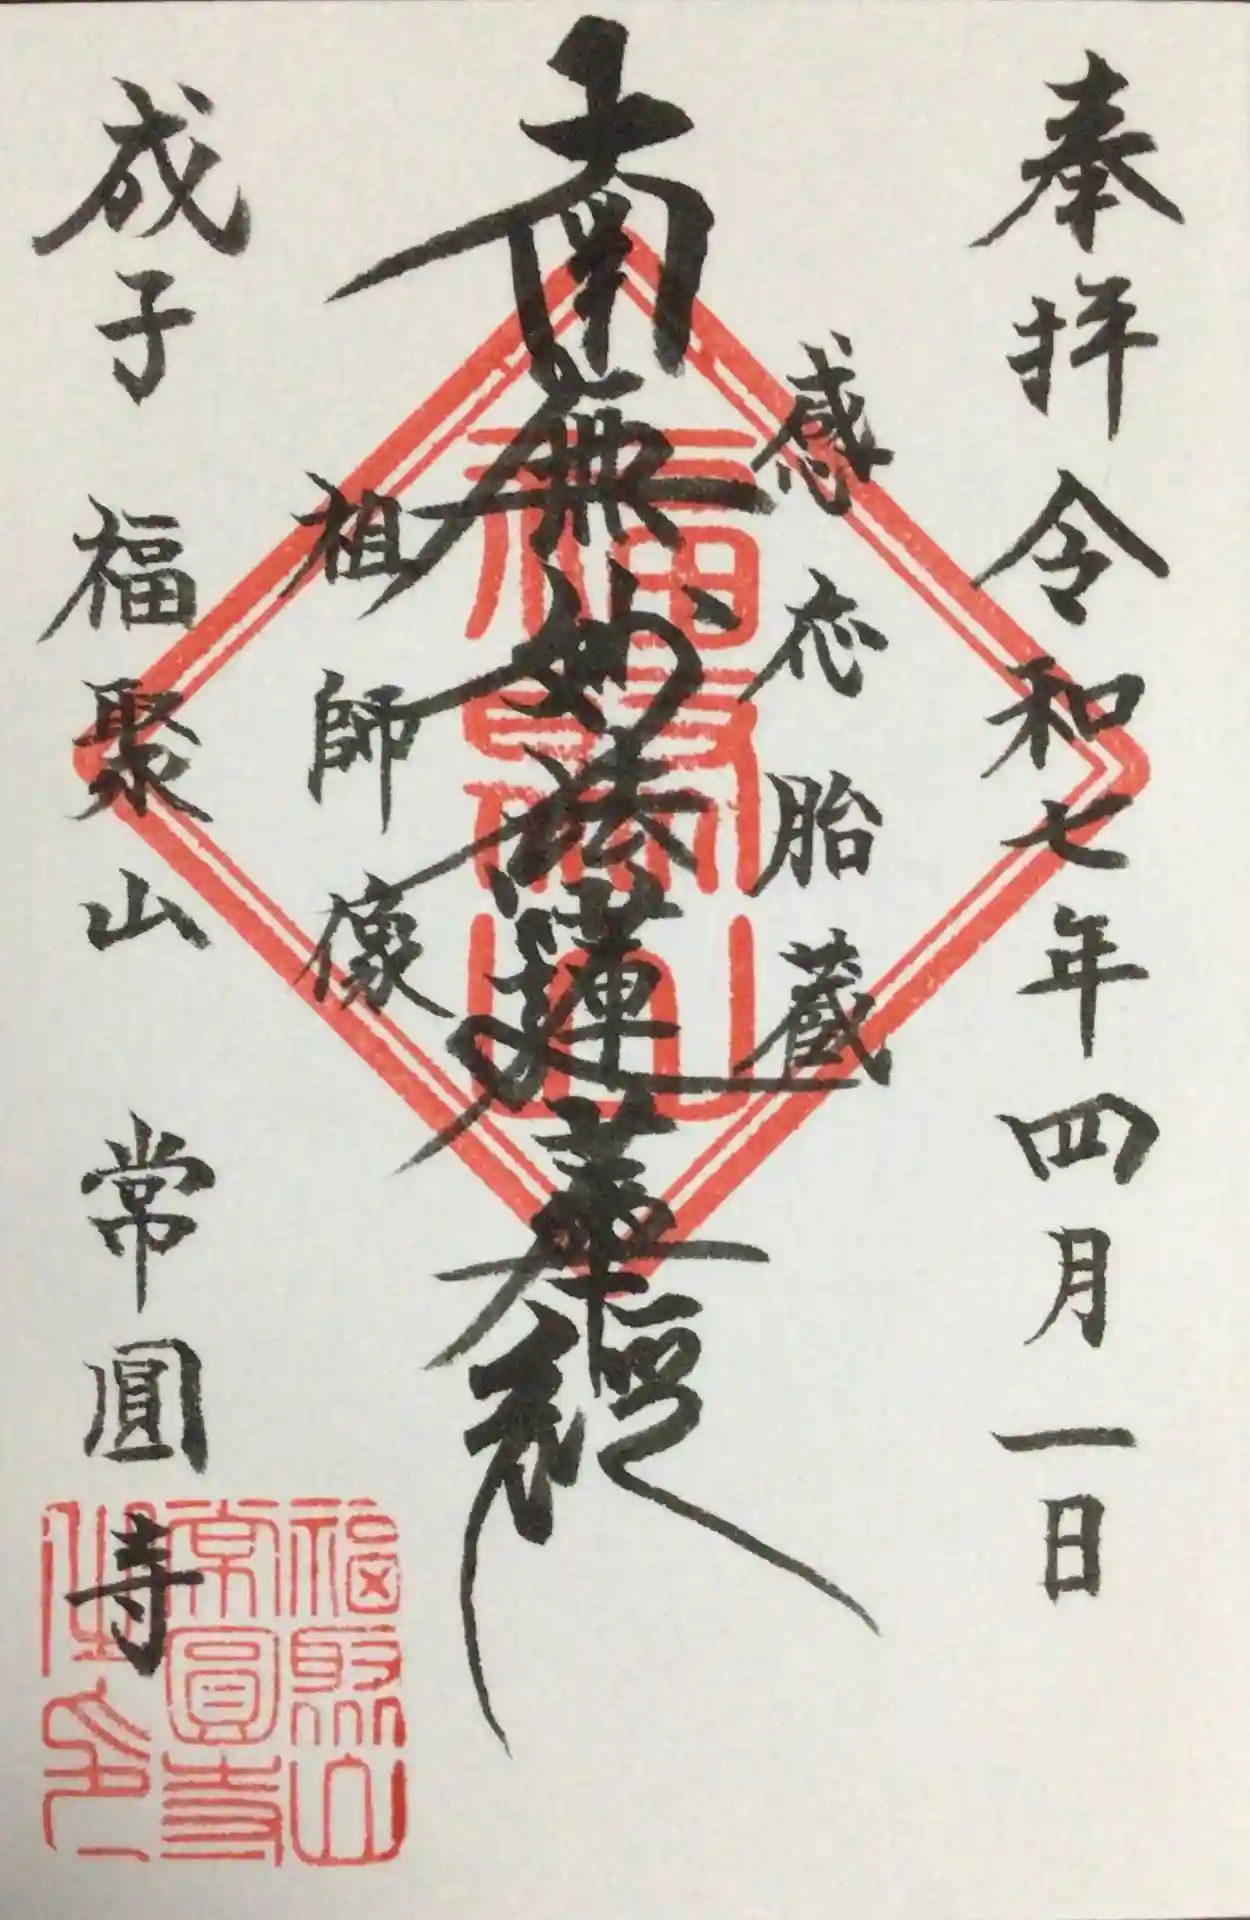 奉拝 令和七年四月一日
感応胎蔵
南無妙法蓮華経
祖師像
成子 福聚山 常圓寺
福聚山
福聚山
常圓寺
住印